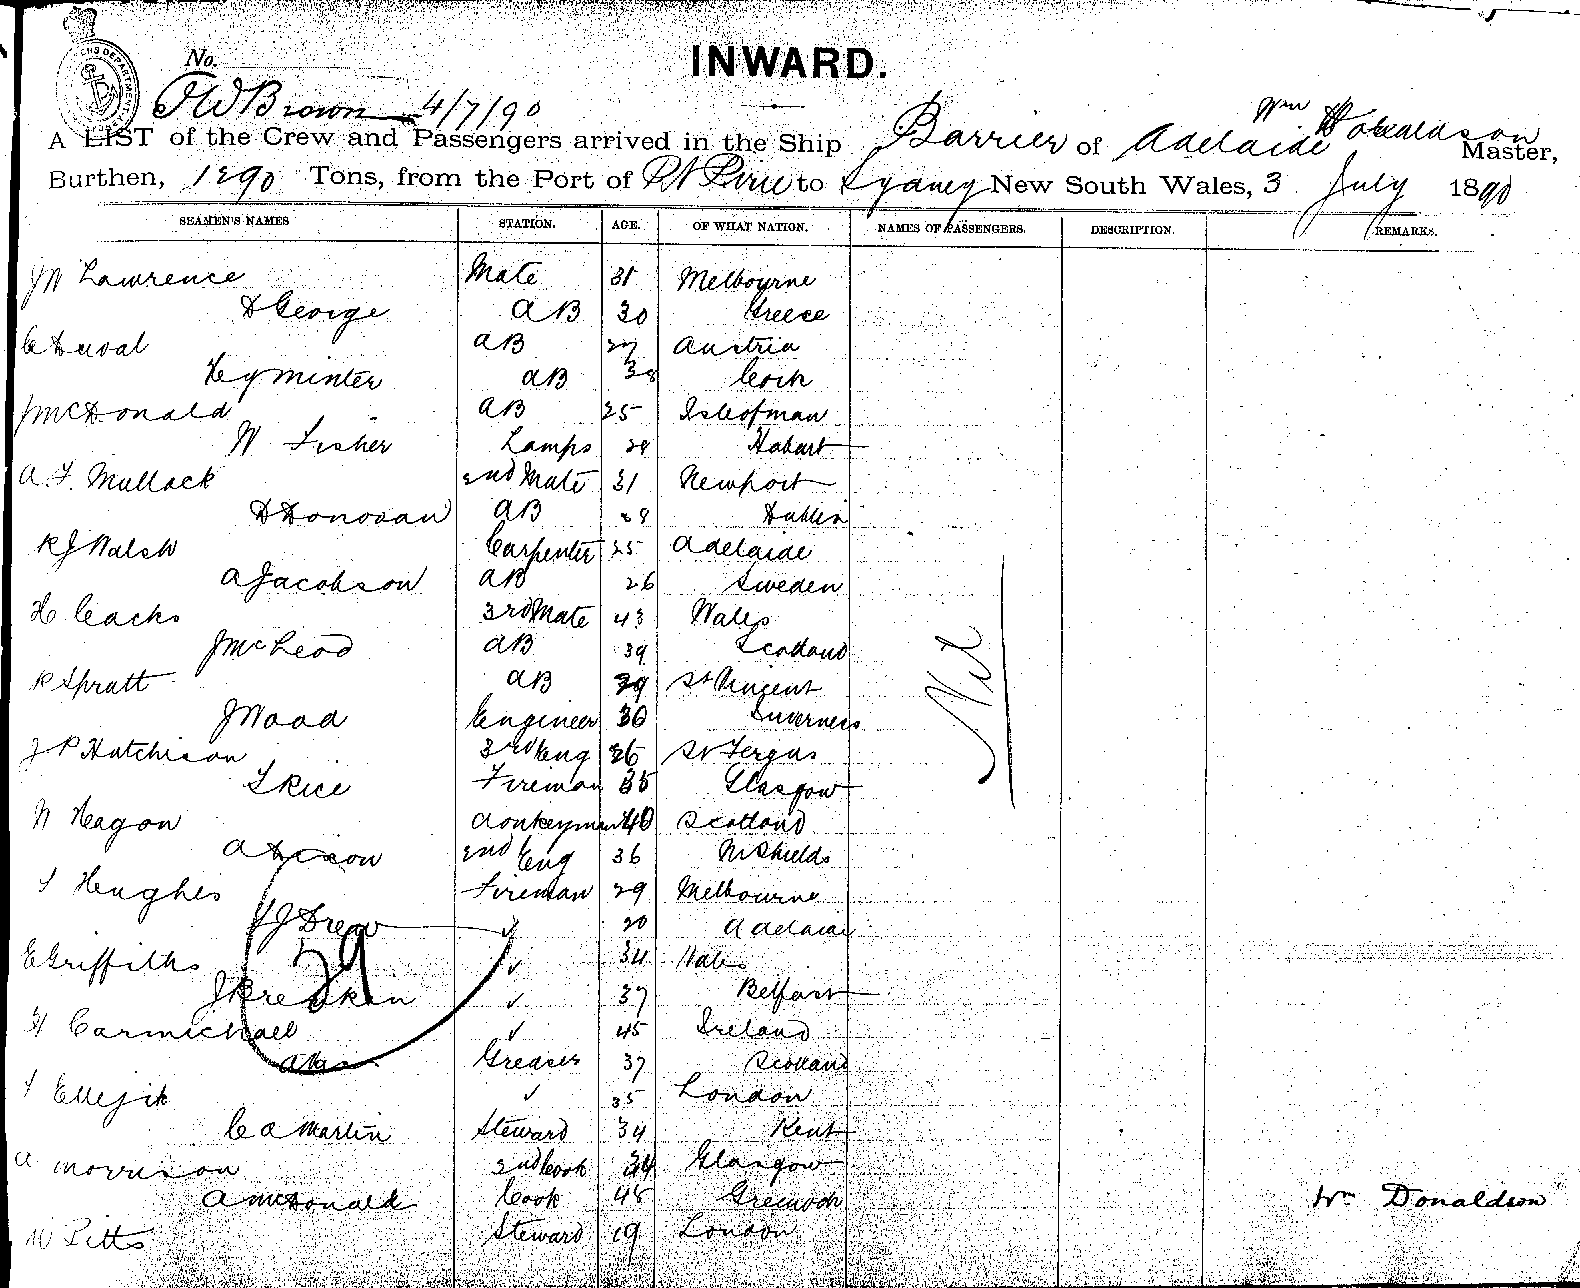 INWARD.
No.
FW Brown 4/7/90
A LIST of the Crew and Passengers arrived in the Ship Barrier of Adelaide Wm Donaldson Master,
Burthen, 1290 Tons, from the Port of Pt Pirie to Sydney New South Wales, 3 July 1890
SEAMEN'S NAMES STATION. AGE. OF WHAT NATION. NAMES OF PASSENGERS. DESCRIPTION. REMARKS.
JW Lawrence Mate 31 Melbourne
D George AB 30 Greece
C Duval AB 27 Austria
Hy Minter AB 38 Cork
J McDonald AB 25 Isle of man
W Fisher Lamps 28 Hobart
A. F. Mullock 2nd Mate 31 Newport
D Donovan AB 28 Dublin
RJ Walsh Carpenter 25 Adelaide
A Jacobson AB 26 Sweden
H Cacks 3rd Mate 43 Wales
J McLeod AB 39 Scotland
Nil
R Spratt AB 39 St Vincent
J Wood Engineer 30 Inverness
J P Hutchison 3rd Eng 26 St Fergus
T Rice Fireman 35 Glasgow
W Heagon donkeyman 40 Scotland
A Dixon 2nd Eng 36 N Shields
T Hughes Fireman 29 Melbourne
J Drew ✓ 20 Adelaide
E Griffiths ✓ 34 Wales
29
J Bre ✓ 37 Belfast
H Carmichael ✓ 45 Ireland
Greaser 37 Scotland
T ✓ 35 London
C A Martin Steward 34 Kent
A Morrison 2nd Cook 34 Glasgow
A McDonald Cook 48 Greenock
Wm Donaldson
W Pitts Steward 19 London